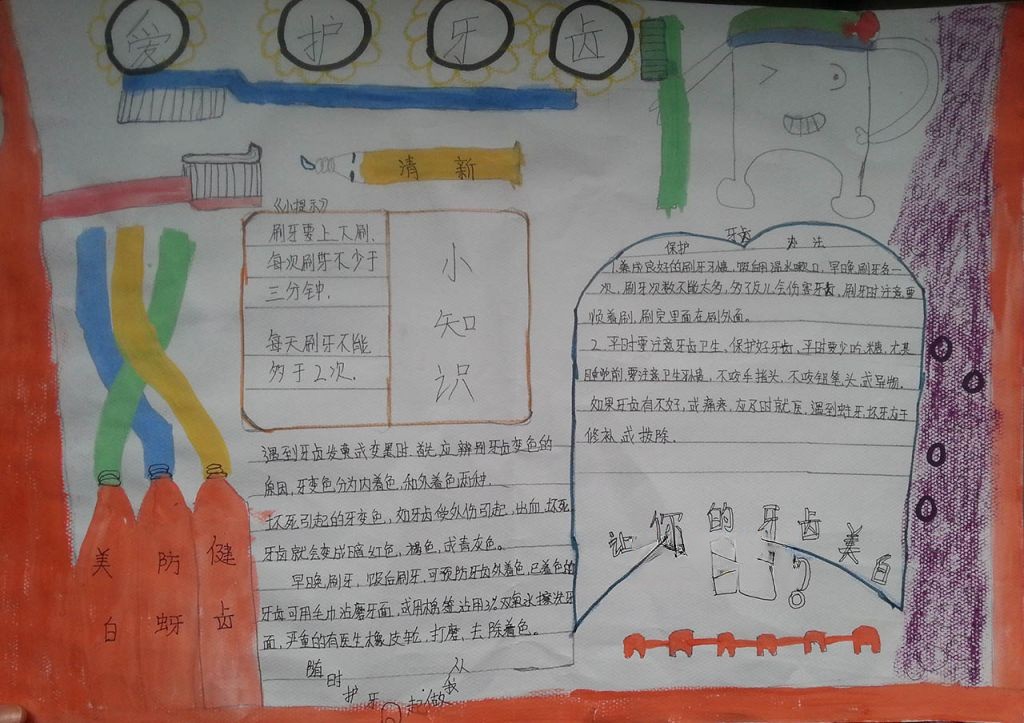 爱护牙齿
清新
《小提示》
刷牙要上下刷.
每次刷牙不少于
三分钟.
每天刷牙不能
多于2次.
小知识
保护牙齿办法
1.养成良好的刷牙习惯,饭后用温水嗽口,早晚刷牙各一
次,刷牙次数不能太多,多了反儿会伤害牙齿,刷牙时注意要
顺着刷,刷完里面在刷外面。
2.平时要注意牙齿卫生,保护好牙齿,平时要少吃糖,尤其
睡觉前,要注意卫生习惯,不咬手指头,不咬铅笔头或异物.
如果牙齿有不好,或痛疼,应及时就医,遇到蛀牙,坏牙应于
修补或拔除.
让你的牙齿美白
遇到牙齿发黄或变黑时,首先应辨别牙齿变色的
原因,牙变色分为内着色,和外着色两种.
坏死引起的牙变色,如牙齿受外伤引起,出血,坏死
牙齿就会变成暗红色,褐色,或青灰色。
早晚刷牙,饭后刷牙,可预防牙齿外着色,已着色的
牙齿可用毛巾沾磨牙面,或用棉签沾用3%双氧水擦洗牙
面,严重的有医生橡皮轮,打磨,去除着色。
随时护牙 从我做起
美白
防蚜
健齿